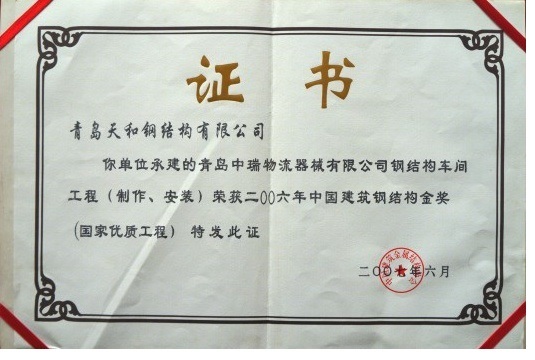 证书
青岛天和钢结构有限公司
你单位承建的青岛中瑞物流器械有限公司钢结构车间
工程（制作、安装）荣获二〇〇六年中国建筑钢结构金奖
(国家优质工程) 特发此证
二〇〇七年六月